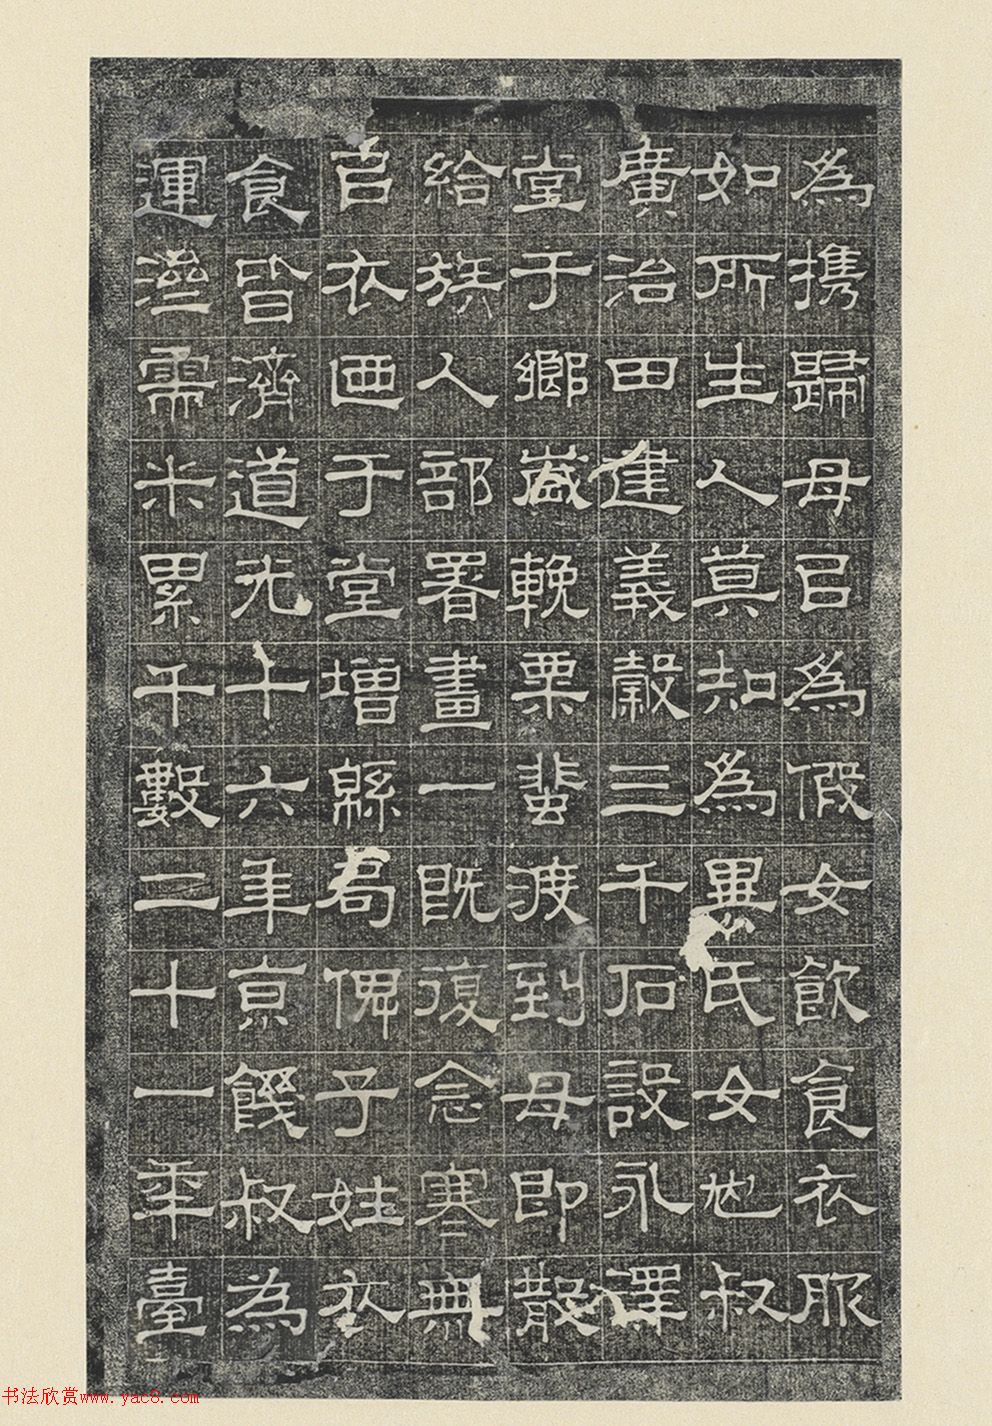 為携歸母㠯為假女飲食衣服
如所生人莫知為畢氏女也叔
廣治田建義穀三千石設永澤
堂于鄉歲輓粟蜚渡到母即散
給族人部署畫一既復念寒無
㠯衣迺于堂增緜局俾子姓衣
食皆濟道光十六年京饑叔為
運濕需米累千數二十一年臺
书法欣赏www.yac8.com